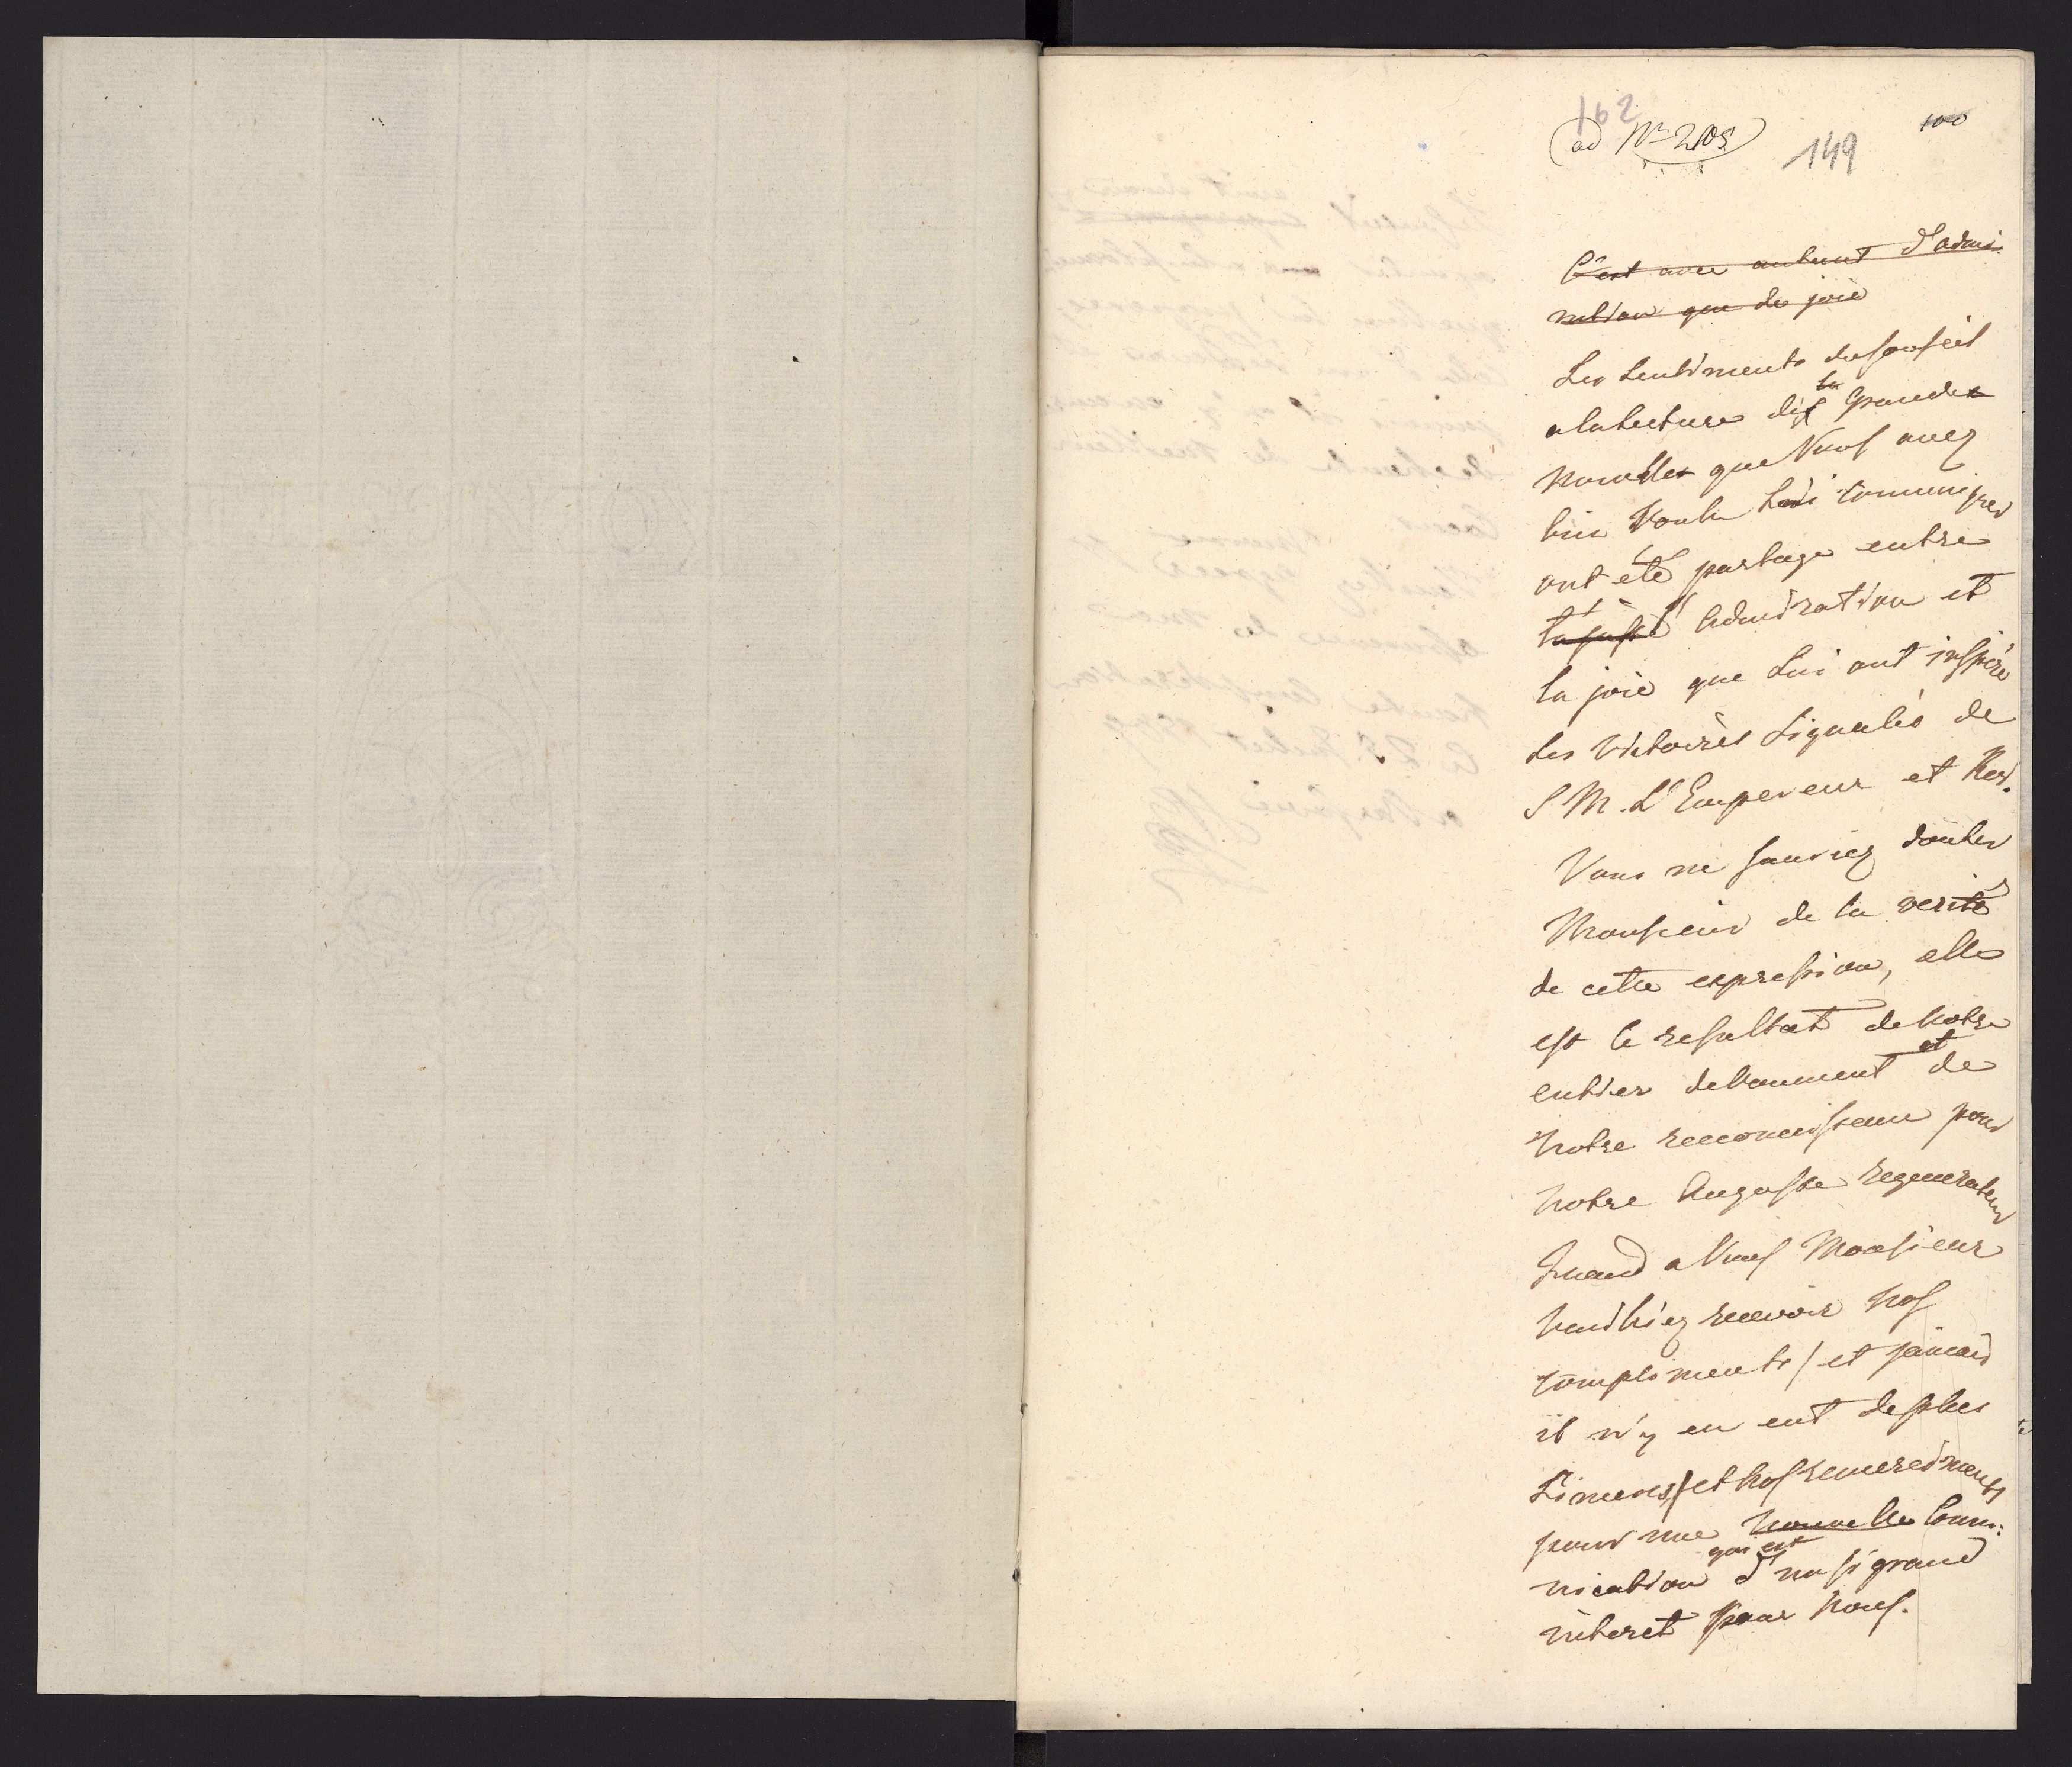 162
ad No 2105
149
100
C'est avec autant d'admi-
ration que de joie
Les sentiments du Conseil
a la lecture de la Grande
Nouvelle que Vous avez
bien voulu Lui communiquer
ont été partage entre
la juste l'admiration et
la joie que Lui ont inspiré
les Victoires signalés de
S M. L'Empereur et Roi.
Vous ne sauriez douter
Monsieur de la verité
de cette expression, elle
est le resultat de Notre
entier devouement et de
Notre reconnoissance pour
Notre Auguste regenerateur
Quand a Vous Monsieur
veuilliez recevoir Nos
compliments / et jamais
il n'y en eut de plus
sinceres / et Nos remerciments
pour une nouvelle Comu-
nication qui est d'un si grand
interet pour Nous.